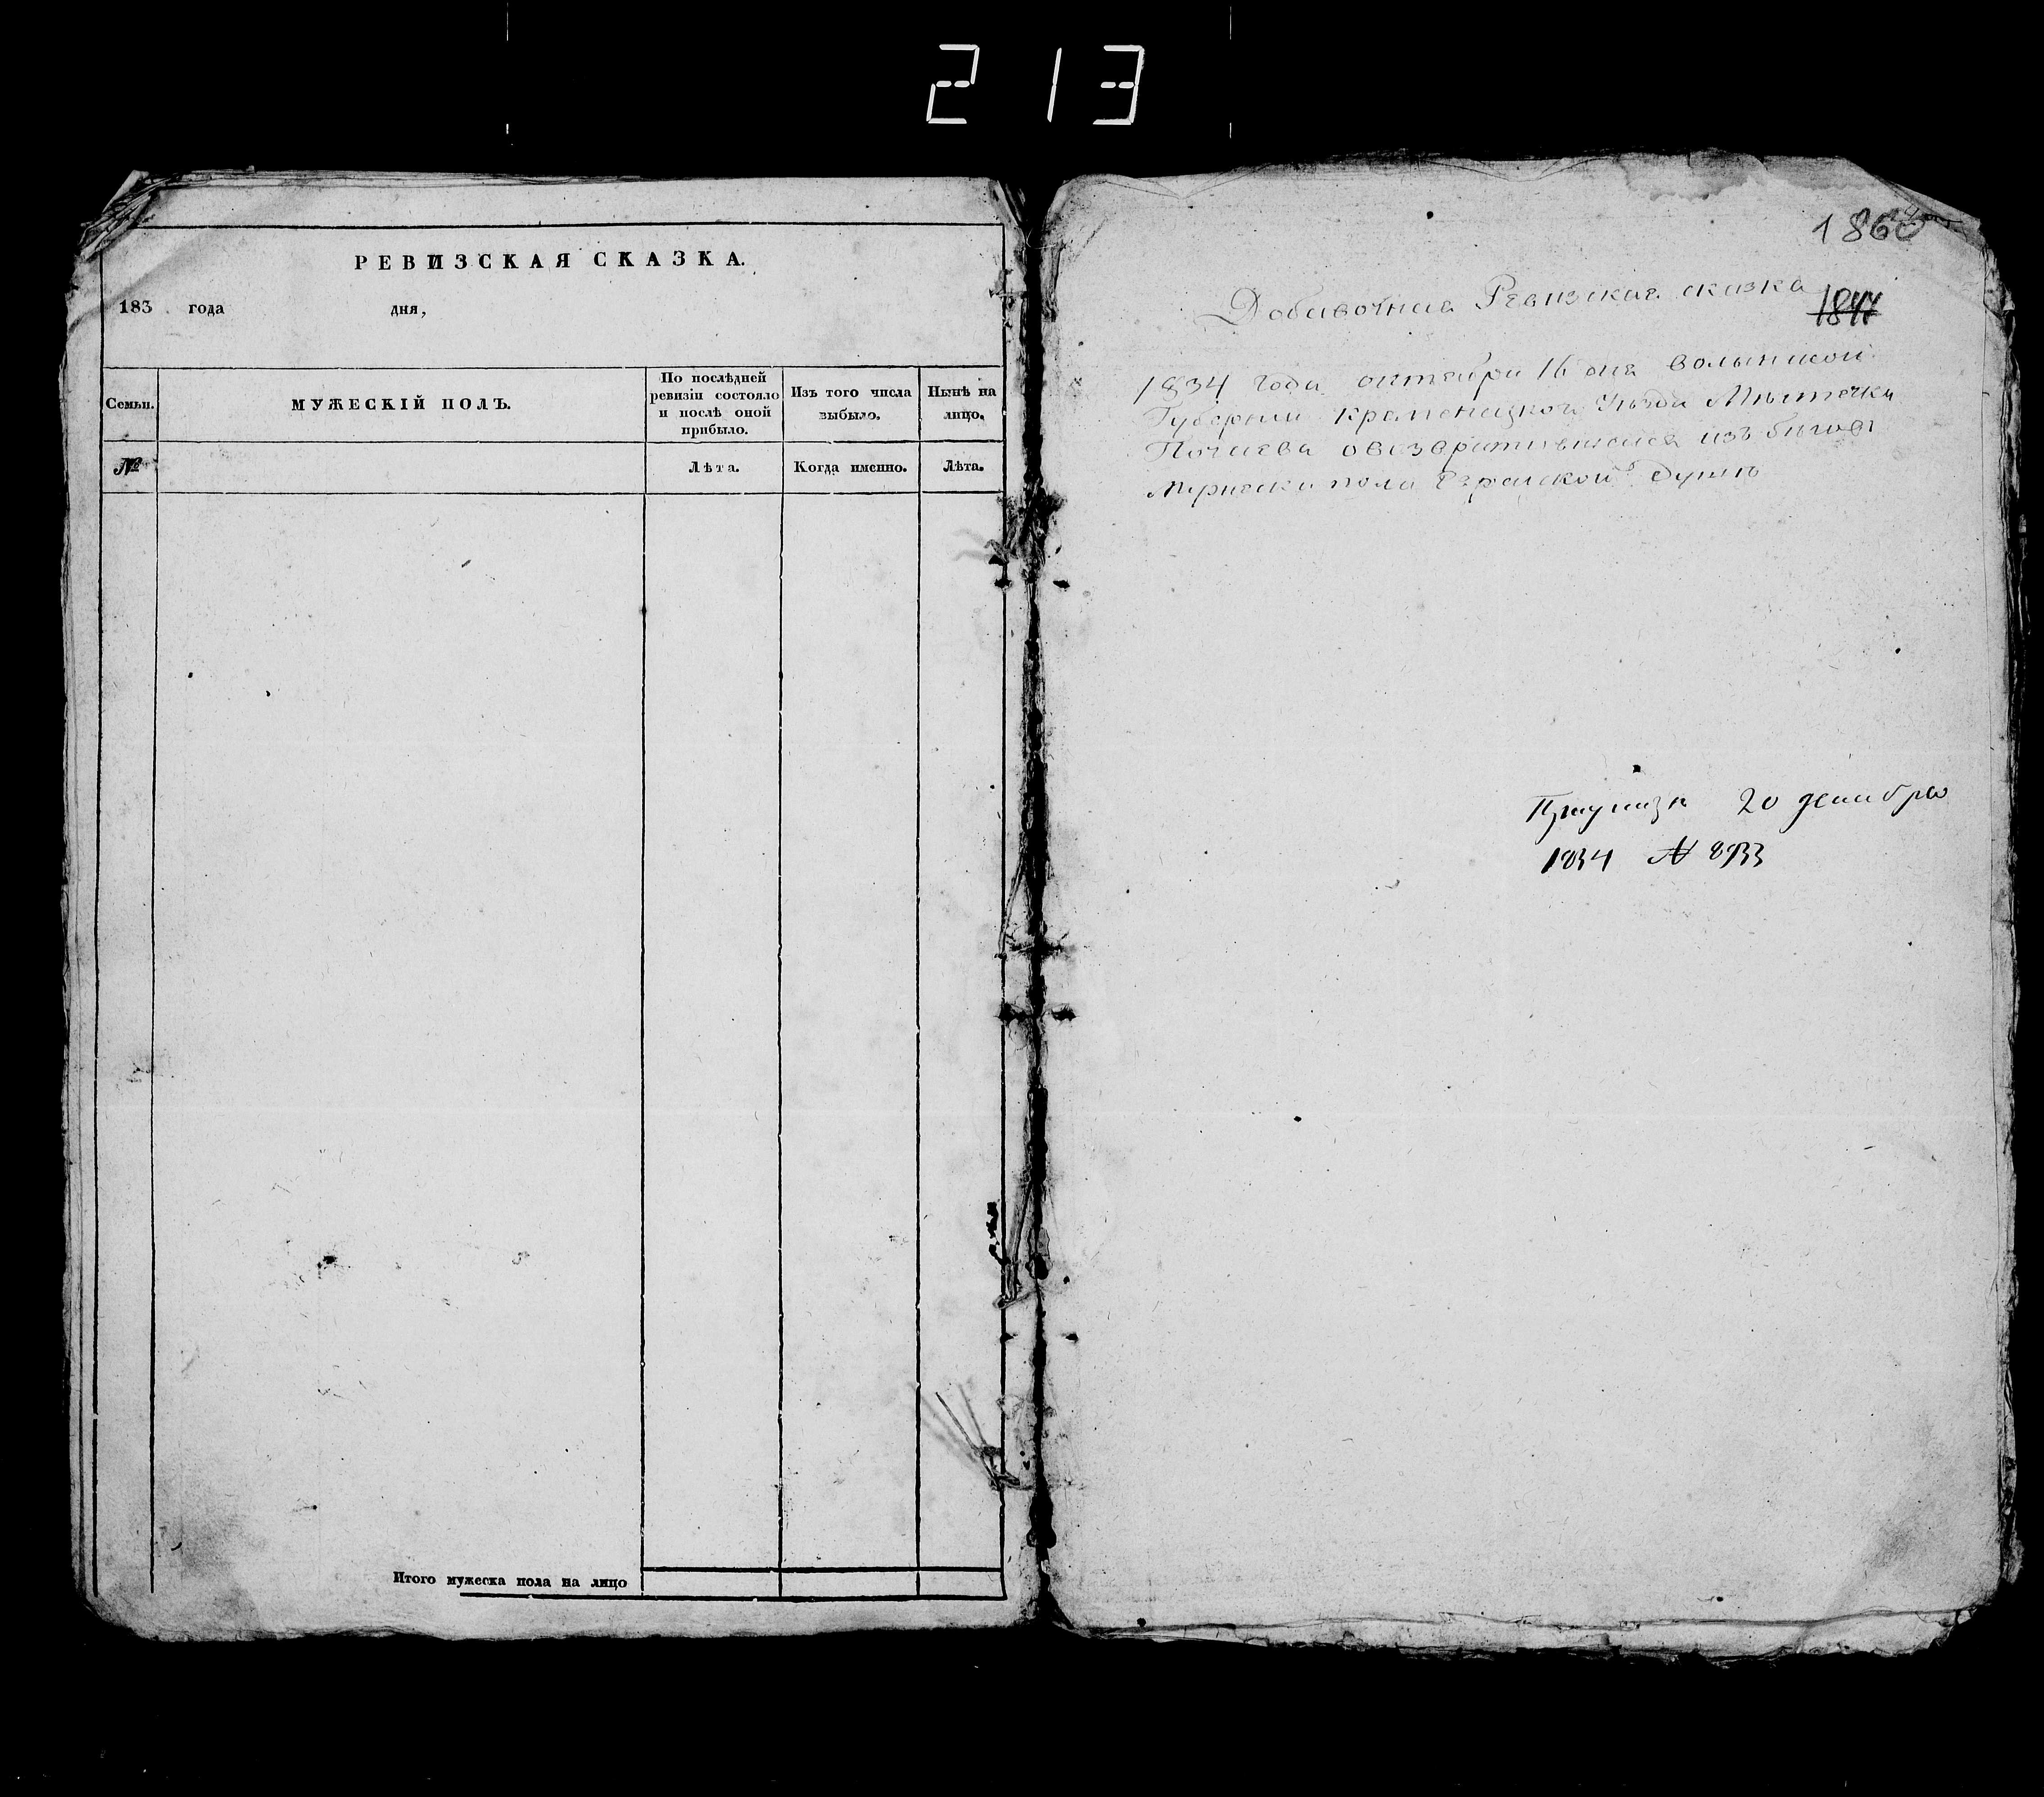 213
РЕВИЗСКАЯ СКАЗКА.
183 года дня,
Семьи.
МУЖЕСКІЙ ПОЛЪ.
По послѣдней ревизіи состояло и послѣ оной прибыло.
Изъ того числа выбыло.
Нынѣ на лицо.
№
Лѣта.
Когда именно.
Лѣта.
Итого мужеска пола на лицо
1860
1847
Добавочная Ревизская сказка
1834 года октября 16 дня Волынской
Губернии Кременецкого Уезда Мѣстечка
Почаева овозвратившейся изъ бѣгов
Мужеска пола Еврейской душѣ
20 декабря
1834 № 8933